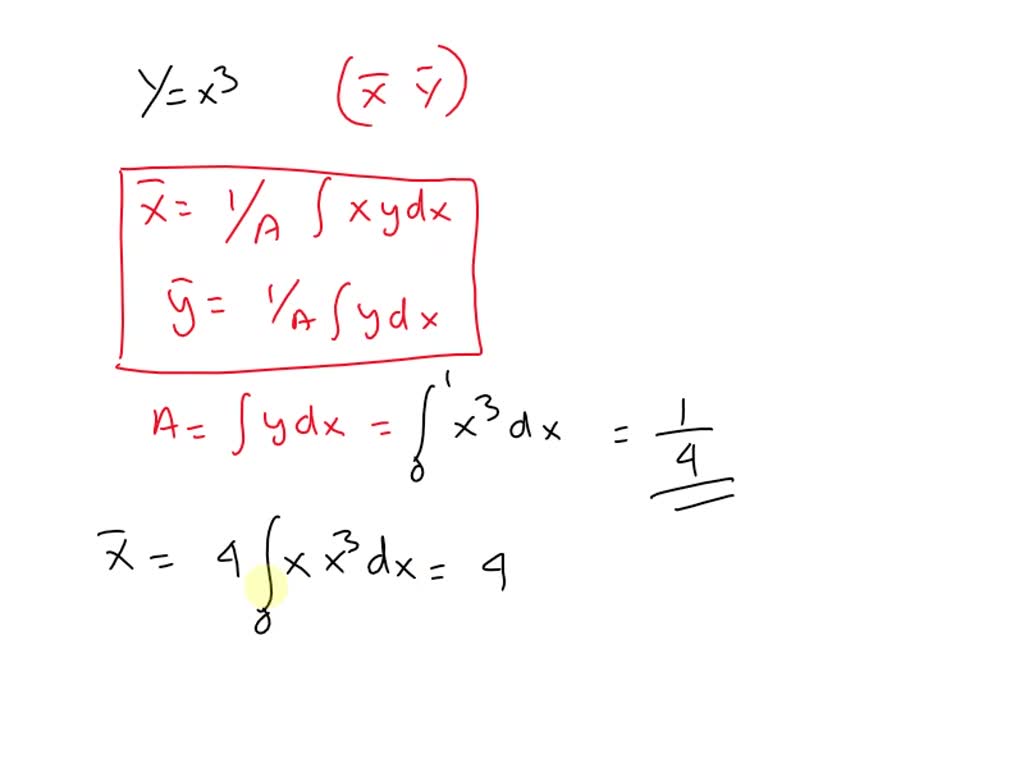 Y = x³ (x̄ ȳ)
x̄ = 1/A ∫ x y dx
ȳ = 1/A ∫ y dx
A = ∫ y dx = ∫₀¹ x³ dx = 1/4
x̄ = 4 ∫₀ x x³ dx = 4